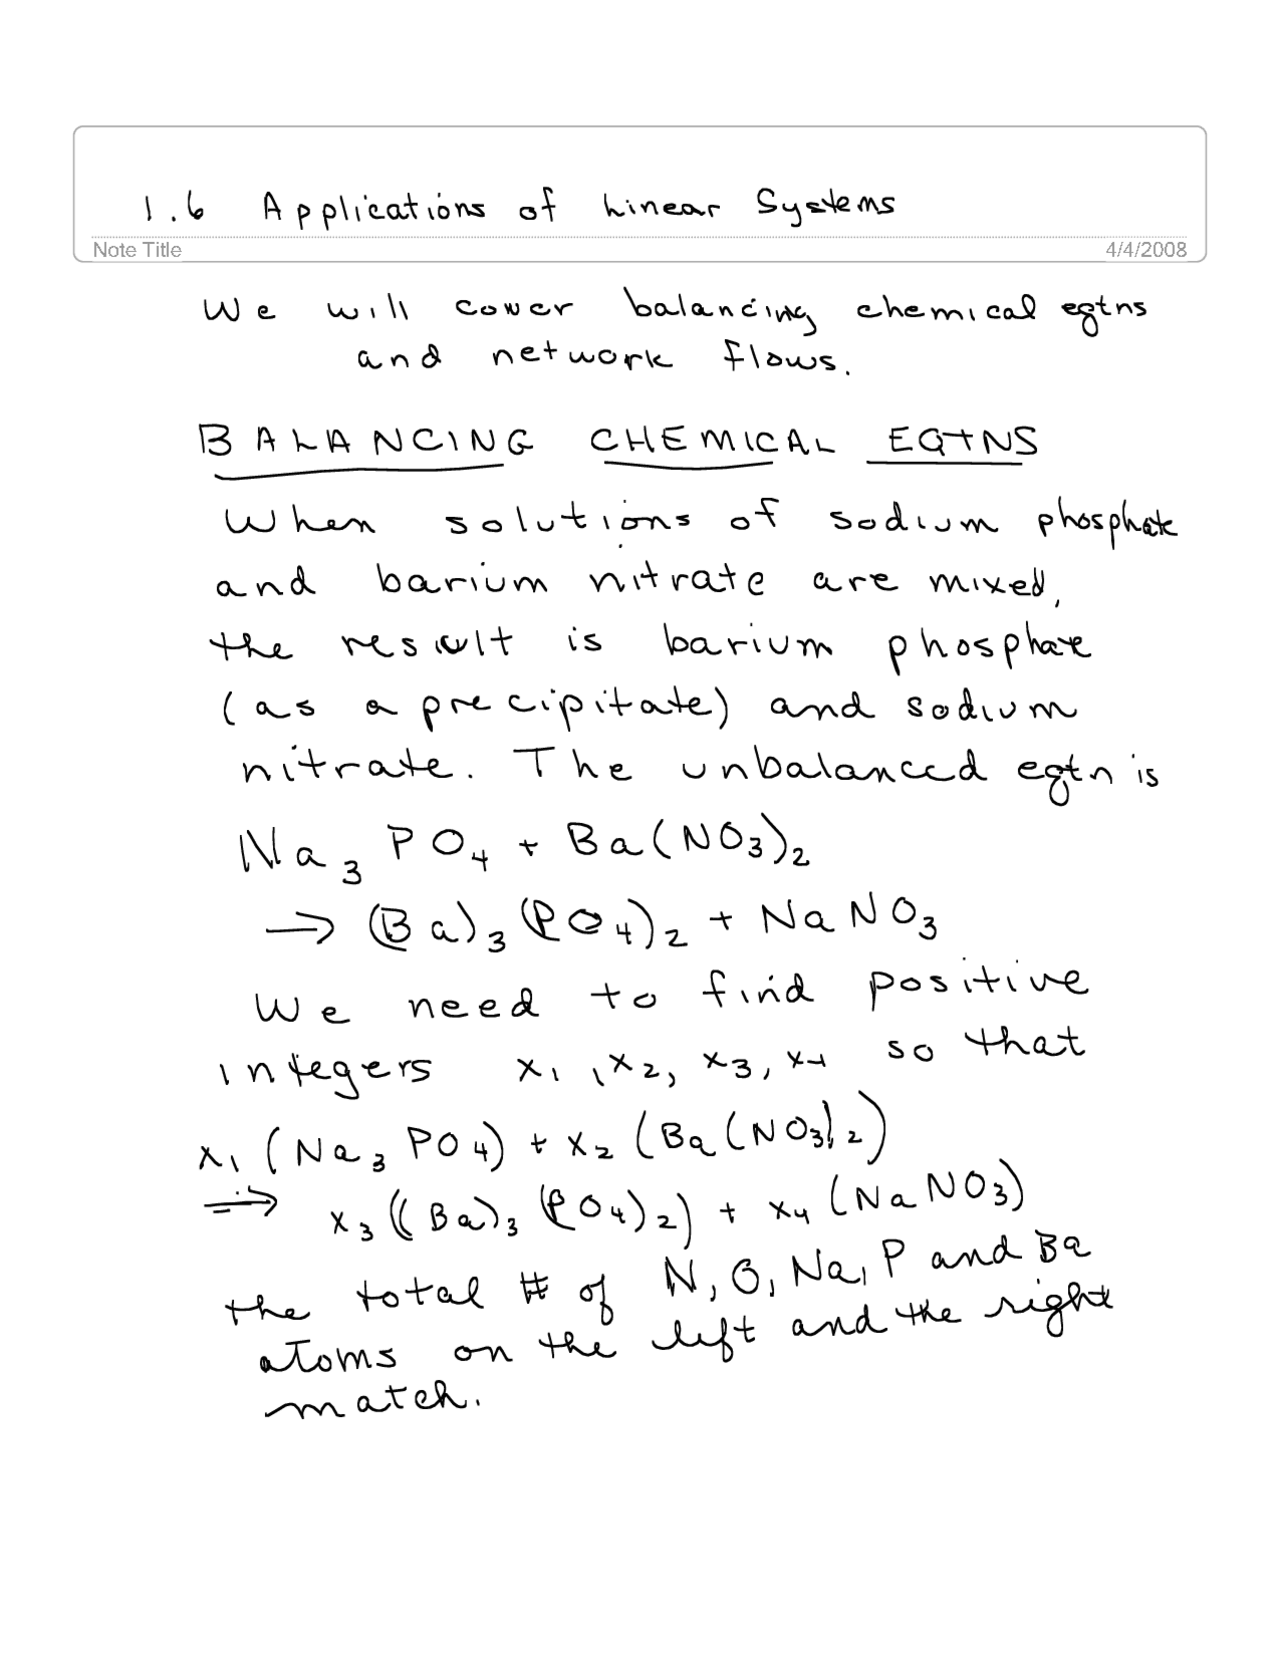 1.6 Applications of Linear Systems
Note Title 4/4/2008
We will cover balancing chemical eqtns
and network flows.
BALANCING CHEMICAL EQTNS
When solutions of sodium phosphate
and barium nitrate are mixed,
the result is barium phosphate
(as a precipitate) and sodium
nitrate. The unbalanced eqtn is
Na₃PO₄ + Ba(NO₃)₂
→ (Ba)₃(PO₄)₂ + NaNO₃
We need to find positive
integers x₁, x₂, x₃, x₄ so that
x₁(Na₃PO₄) + x₂(Ba(NO₃)₂)
⇒ x₃((Ba)₃(PO₄)₂) + x₄(NaNO₃)
the total # of N, O, Na, P and Ba
atoms on the left and the right
match.